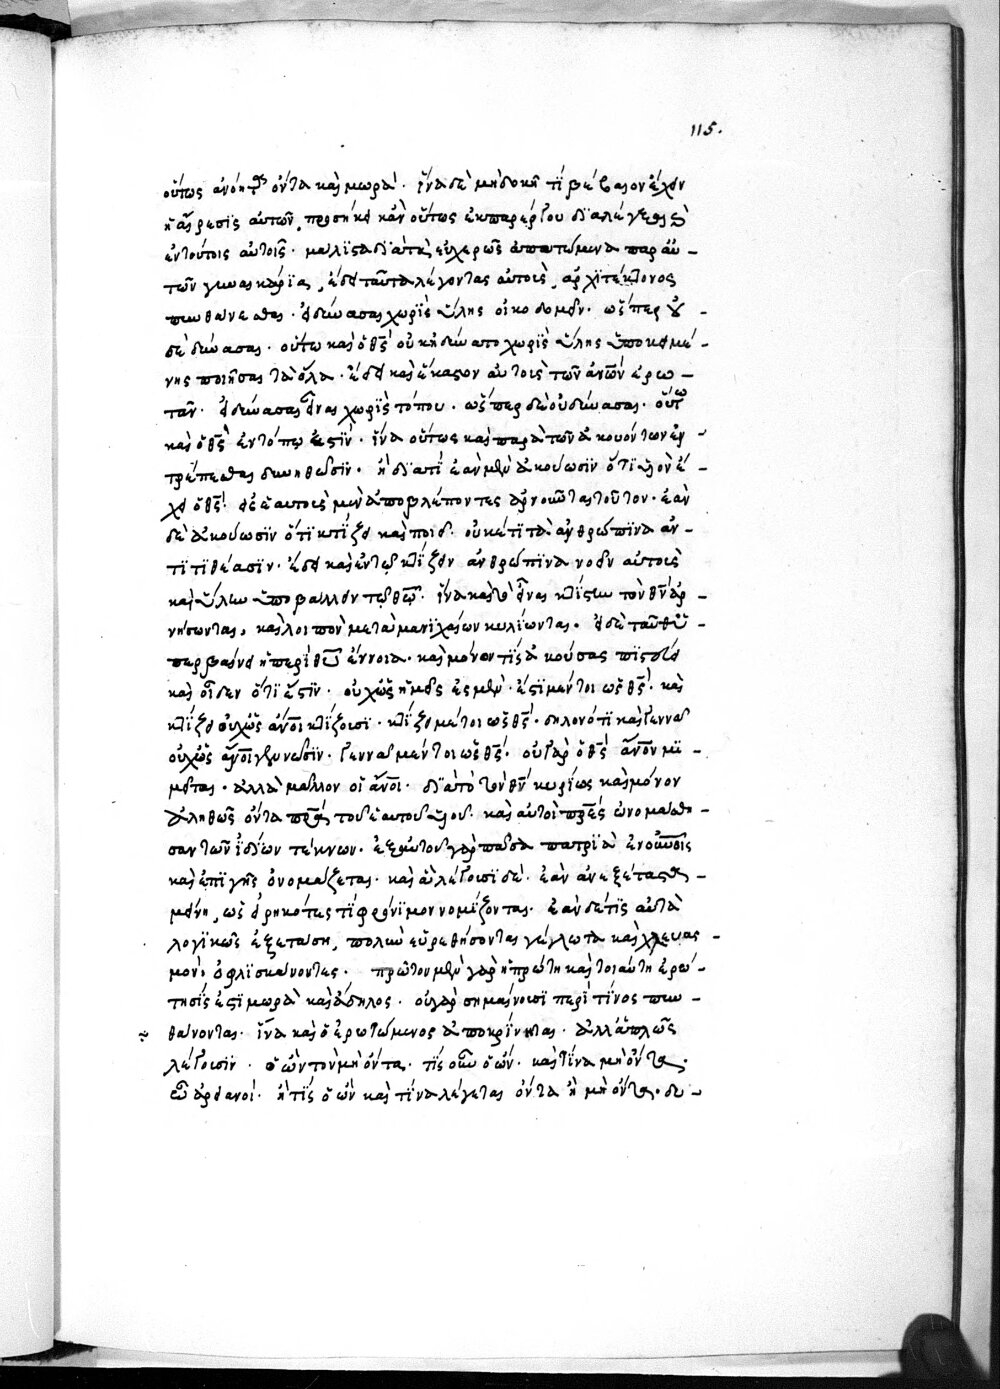 115.
οὕτως ἀνόητα ὄντα καὶ μωρά. ἵνα δὲ μὴ δοκῇ τι βέβαιον ἔχειν
ἡ αἵρεσις αὐτῶν, προσήκει κἂν οὕτως ἐκ παρέργου διαλέγεσθαι
ἐν τούτοις αὐτοῖς. μάλιστα διὰ τὰ εὐχερῶς ἀπατώμενα παρ' αὐ-
τῶν γυναικάρια, ἔδει ταῦτα λέγοντας αὐτοὺς, ἀρχιτέκτονος
πυνθάνεσθαι. εἰ δύνασαι χωρὶς ὕλης οἰκοδομεῖν. ὥσπερ οὐ -
δὲ δύνασαι. οὕτω καὶ ὁ θς οὐκ ἠδύνατο χωρὶς ὕλης ὑποκειμέ -
νης ποιῆσαι τὰ ὅλα. ἔδει καὶ ἕκαστον αὐτοὺς τῶν ἀνων ἐρω -
τᾶν. εἰ δύνασαι εἶναι χωρὶς τόπου. ὥσπερ δὲ οὐ δύνασαι. οὕτω
καὶ ὁ θς ἐν τόπῳ ἐστὶν. ἵνα οὕτως καὶ παρὰ τῶν ἀκουόντων ἐν -
τρέπεσθαι δυνηθῶσιν. ἢ διατί ἐὰν μὲν ἀκούωσιν ὅτι υἱὸν ἔ -
χει ὁ θς εἰς ἑαυτοὺς μὲν ἀποβλέποντες ἀρνοῦνται τοῦτον. ἐὰν
δὲ ἀκούωσιν ὅτι κτίζει καὶ ποιεῖ. οὐκέτι τὰ ἀνθρώπινα ἀν -
τιτιθέασιν. ἔδει καὶ ἐν τῷ κτίζειν ἀνθρώπινα νοεῖν αὐτοὺς
καὶ ὕλην ὑποβάλλειν τῷ θῶ. ἵνα καὶ τὸ εἶναι κτίστην τὸν θν ἀρ -
νήσωνται, καὶ λοιπὸν μετὰ μανιχαίων κυλίωνται. εἰ δὲ ταῦθ' ὑ -
περβαίνει ἡ περὶ θῦ ἔννοια. καὶ μόνον τις ἀκούσας πιστεύει
καὶ οἶδεν ὅτι ἔστιν. οὐχ ὡς ἡμεῖς ἐσμὲν. ἔστι μέντοι ὡς θς. καὶ
κτίζει οὐχ ὡς ἀνοι κτίζουσι. κτίζει μέντοι ὡς θς. δηλονότι καὶ γεννᾷ
οὐχ ὡς ἀνοι γεννῶσιν. γεννᾷ μέντοι ὡς θς. οὐ γὰρ ὁ θς ἀνον μι -
μεῖται. ἀλλὰ μᾶλλον οἱ ἀνοι. διὰ τὸ τὸν θν κυρίως καὶ μόνον
ἀληθῶς ὄντα πρα τοῦ ἑαυτοῦ υἱοῦ. καὶ αὐτοὶ πρες ὠνομάσθη -
σαν τῶν ἰδίων τέκνων. ἐξ αὐτοῦ γὰρ πᾶσα πατριὰ ἐν οὐνοῖς
καὶ ἐπὶ γῆς ὀνομάζεται. καὶ ἃ λέγουσι δὲ. ἐὰν ἀνεξέταστα -
μείνῃ, ὡς εἰρηκότες τι φρόνιμον νομίζονται. ἐὰν δέ τις αὐτὰ
λογικῶς ἐξετάσῃ, πολὺν εὑρεθήσονται γέλωτα καὶ χλευασ -
μὸν ὀφλισκάνοντες. πρῶτον μὲν γὰρ ἡ πρώτη καὶ τοιαύτη ἐρώ -
τησίς ἐστι μωρὰ καὶ ἄδηλος. οὐ γὰρ σημαίνουσι περὶ τίνος πυν -
θάνονται. ἵνα καὶ ὁ ἐρωτώμενος ἀποκρίνηται. ἀλλ' ἁπλῶς
λέγουσιν. ὁ ὢν τὸν μὴ ὄντα. τίς οὖν ὁ ὢν. καὶ τίνα μὴ ὄντα.
ὦ ἀρειανοί. ἢ τίς ὁ ὢν καὶ τίνα λέγεται ὄντα ἢ μὴ ὄντα. δυ -